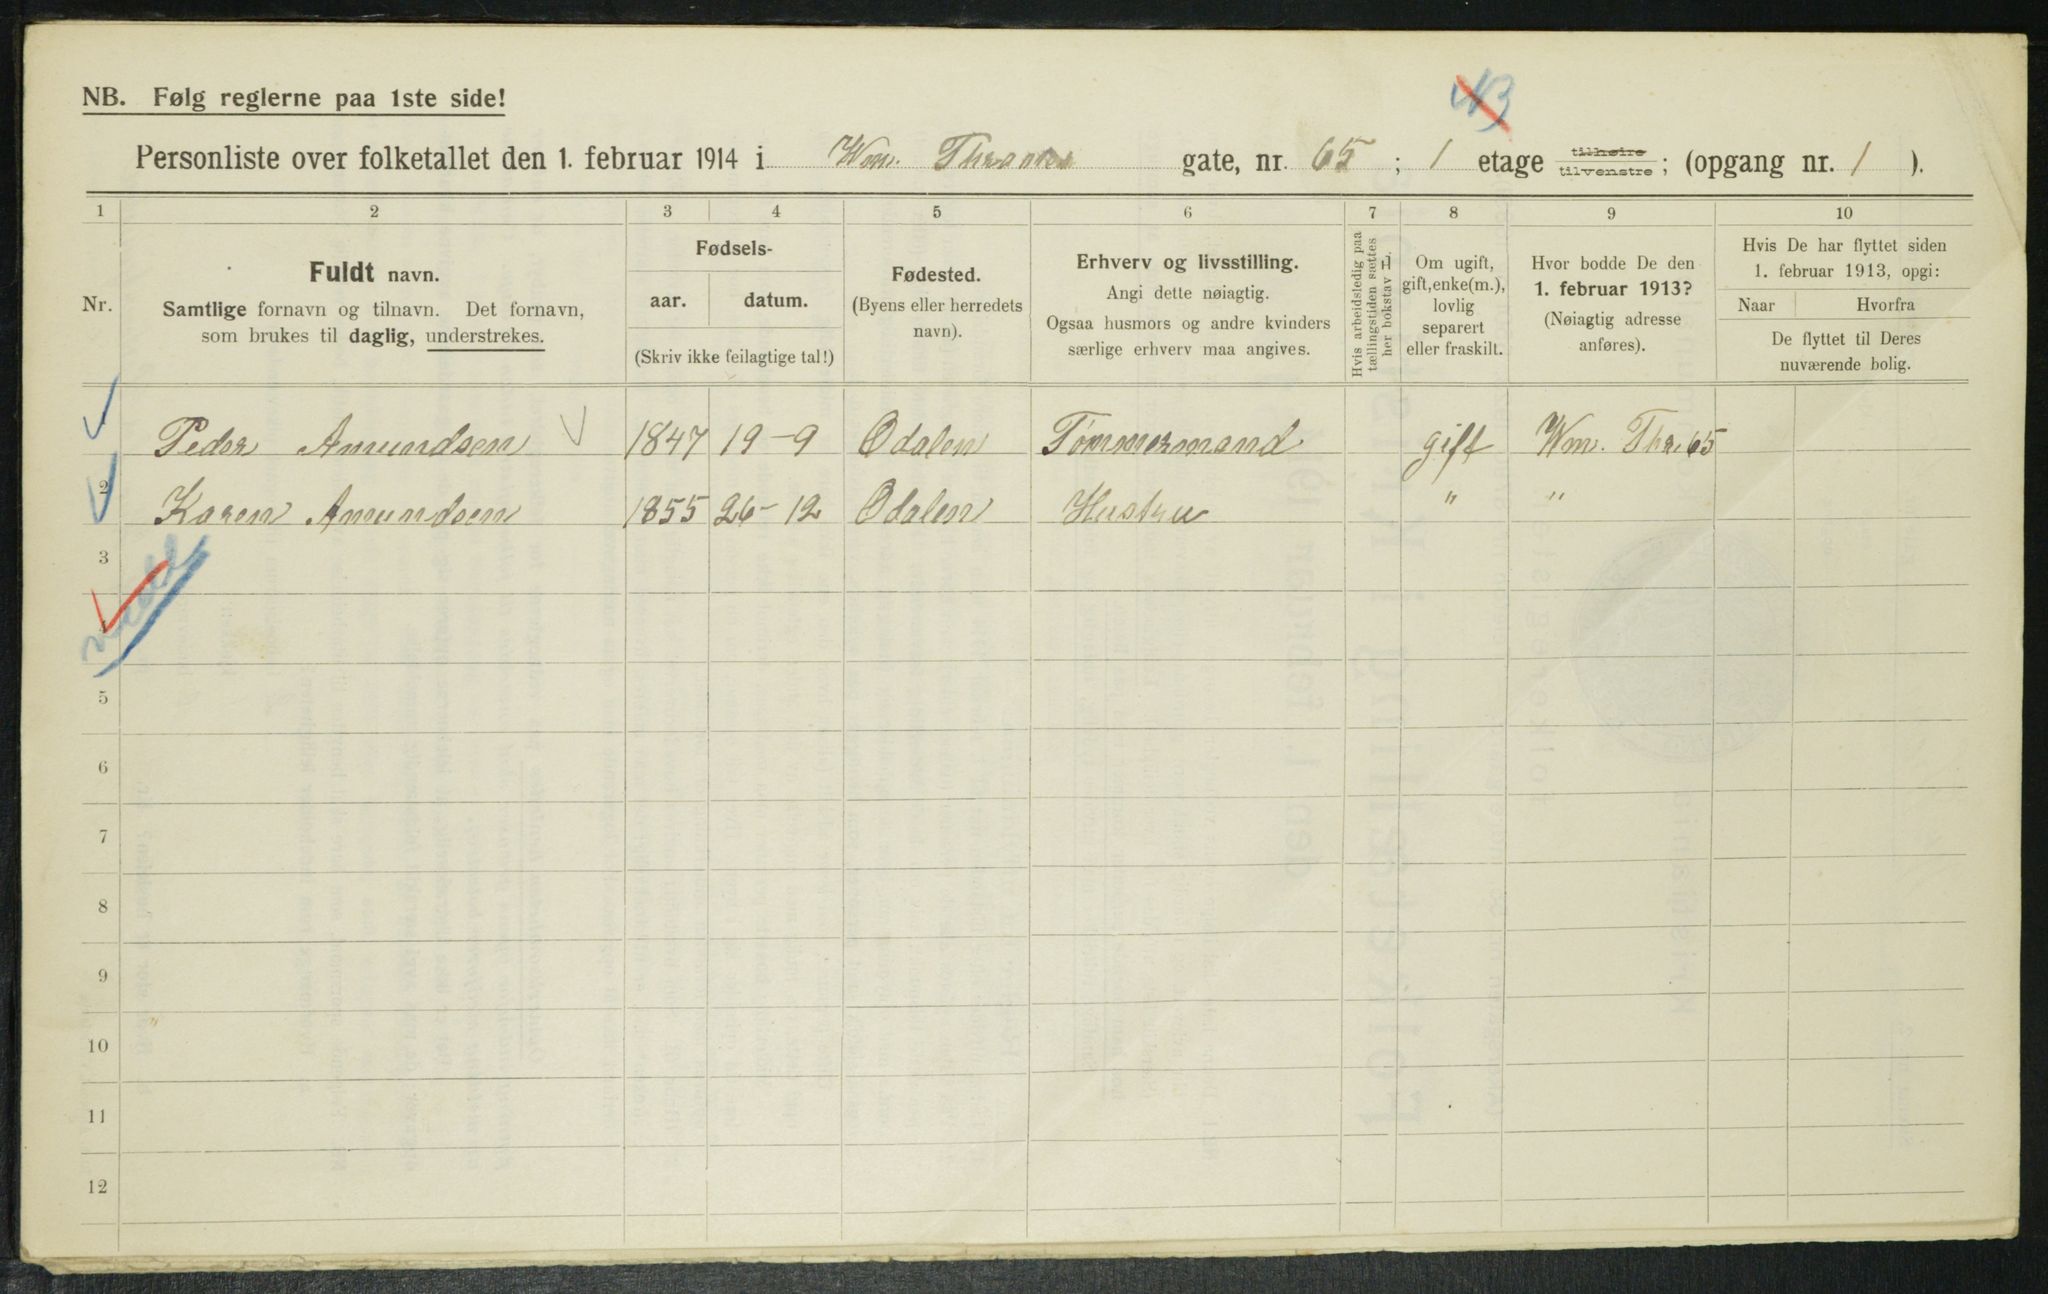 NB. Følg reglerne paa 1ste side!
NB
Personliste over folketallet den 1. februar 1914 i Wm. Thranes gate, nr. 65 ; 1 etage tilhøire tilvenstre ; (opgang nr. 1 ).
1 2 3 4 5 6 7 8 9 10
Nr.
Fuldt navn.
Samtlige fornavn og tilnavn. Det fornavn,
som brukes til daglig, understrekes.
Fødsels-
aar. datum.
(Skriv ikke feilagtige tal!)
Fødested.
(Byens eller herredets
navn).
Erhverv og livsstilling.
Angi dette nøiagtig.
Ogsaa husmors og andre kvinders
særlige erhverv maa angives.
Hvis arbeidsledig paa
tællingstiden sættes
her bokstav L
Om ugift,
gift, enke(m.),
lovlig
separert
eller fraskilt.
Hvor bodde De den
1. februar 1913?
(Nøiagtig adresse
anføres).
Hvis De har flyttet siden
1. februar 1913, opgi:
Naar Hvorfra
De flyttet til Deres
nuværende bolig.
Peder Amundsen 1847 19-9 Odalen Tømmermand gift Wm. Thr. 65
2 Karen Amundsen 1855 26-12 Odalen Hustru " "
3
4
5
6
7
8
9
10
11
12